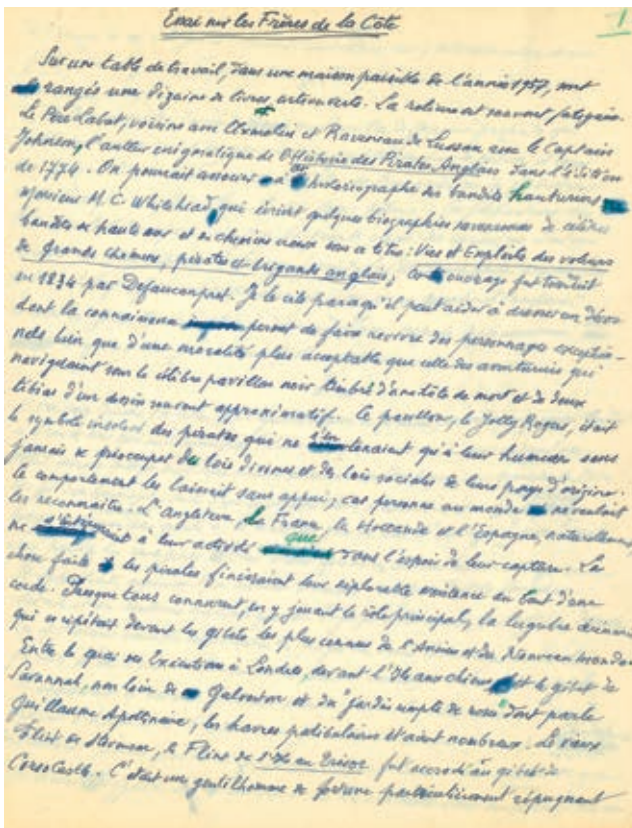 Essai sur les Frères de la Côte
1
Sur une table de travail, dans une maison paisible de l'année 1957, sont
rangés une dizaine de livres entrouverts. La reliure est souvent fatiguée.
Le Père Labat, voisine avec Œxmelin et Raveneau de Lussan avec le Captain
Johnson, l'auteur énigmatique de l'Histoire des Pirates Anglais dans l'édition
de 1774. On pourrait associer à historiographe des bandits
Monsieur M. C. Whitehead, qui écrivit quelques biographies savoureuses de célèbres
bandits de haute mer et de chemins creux sous ce titre : Vies et Exploits des voleurs
de grands chemins, pirates et brigands anglais; ouvrage fut traduit
en 1834 par Defauconpret. Je le cite parce qu'il peut aider à dresser un décor
dont la connaissance permet de faire revivre des personnages exception-
nels bien que d'une moralité plus acceptable que celle des aventuriers qui
naviguaient sous le célèbre pavillon noir timbré d'une tête de mort et de deux
tibias d'un dessin souvent approximatif. Ce pavillon, le Jolly Roger, était
le symbole insolent des pirates qui ne tenaient qu'à leur humeur sans
jamais se préoccuper des lois divines et des lois sociales de leurs pays d'origine.
le comportement les laissait sans appui, car personne au monde ne voulait
les reconnaître. L'Angleterre, la France, la Hollande et l'Espagne, naturellement,
ne à leur activité que dans l'espoir de leur capture. La
chose faite les pirates finissaient leur déplorable existence au bout d'une
corde. Presque tous connurent, en y jouant le rôle principal, la lugubre
qui se répétait devant les gibets les plus connus de l'Ancien et du Nouveau monde
Entre le quai des Exécutions à Londres, devant l'Ile aux chiens et le gibet de
Savannah, non loin de Galveston et du jardin simple de dont parle
Guillaume Apollinaire, les havres patibulaires étaient nombreux. Le vieux
Flint de Stevenson, le Flint de l'Ile au Trésor fut accroché au gibet de
Corso Castle. C'était un gentilhomme de fortune particulièrement répugnant